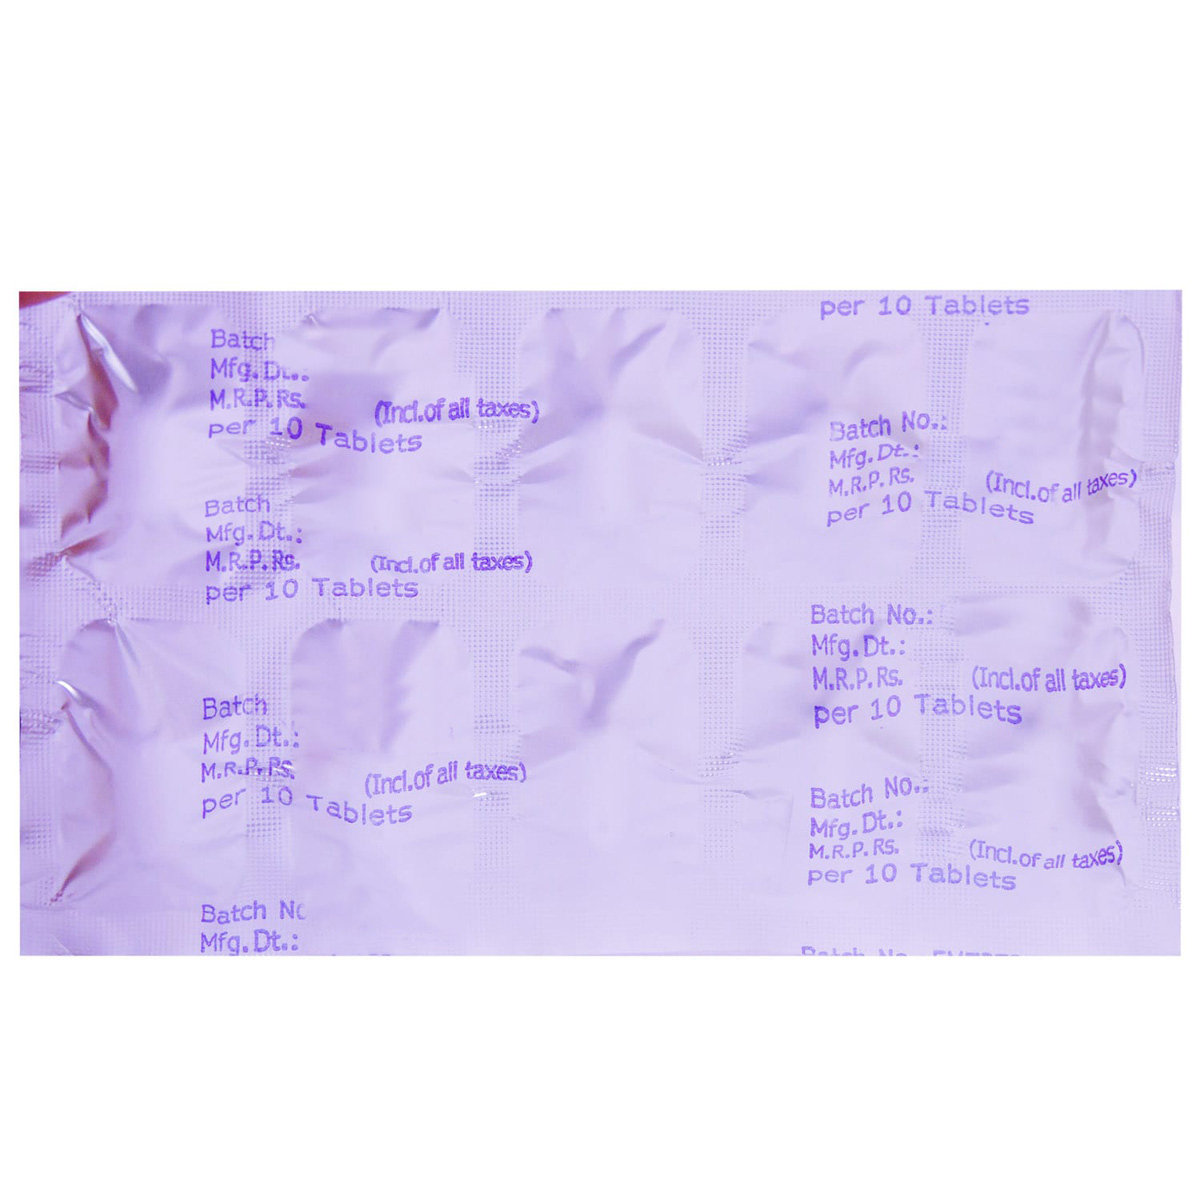 per 10 Tablets
Batch
Mfg.Dt.:
M.R.P.Rs. (Incl.of all taxes)
per 10 Tablets
Batch No.:
Mfg.Dt.:
M.R.P.Rs. (Incl.of all taxes)
per 10 Tablets
Batch
Mfg.Dt.:
M.R.P.Rs. (Incl.of all taxes)
per 10 Tablets
Batch No.:
Mfg.Dt.:
M.R.P.Rs. (Incl.of all taxes)
per 10 Tablets
Batch
Mfg.Dt.:
M.R.P.Rs. (Incl.of all taxes)
per 10 Tablets
Batch No.:
Mfg.Dt.:
M.R.P.Rs. (Incl.of all taxes)
per 10 Tablets
Batch
Mfg.Dt.:
Batch No.